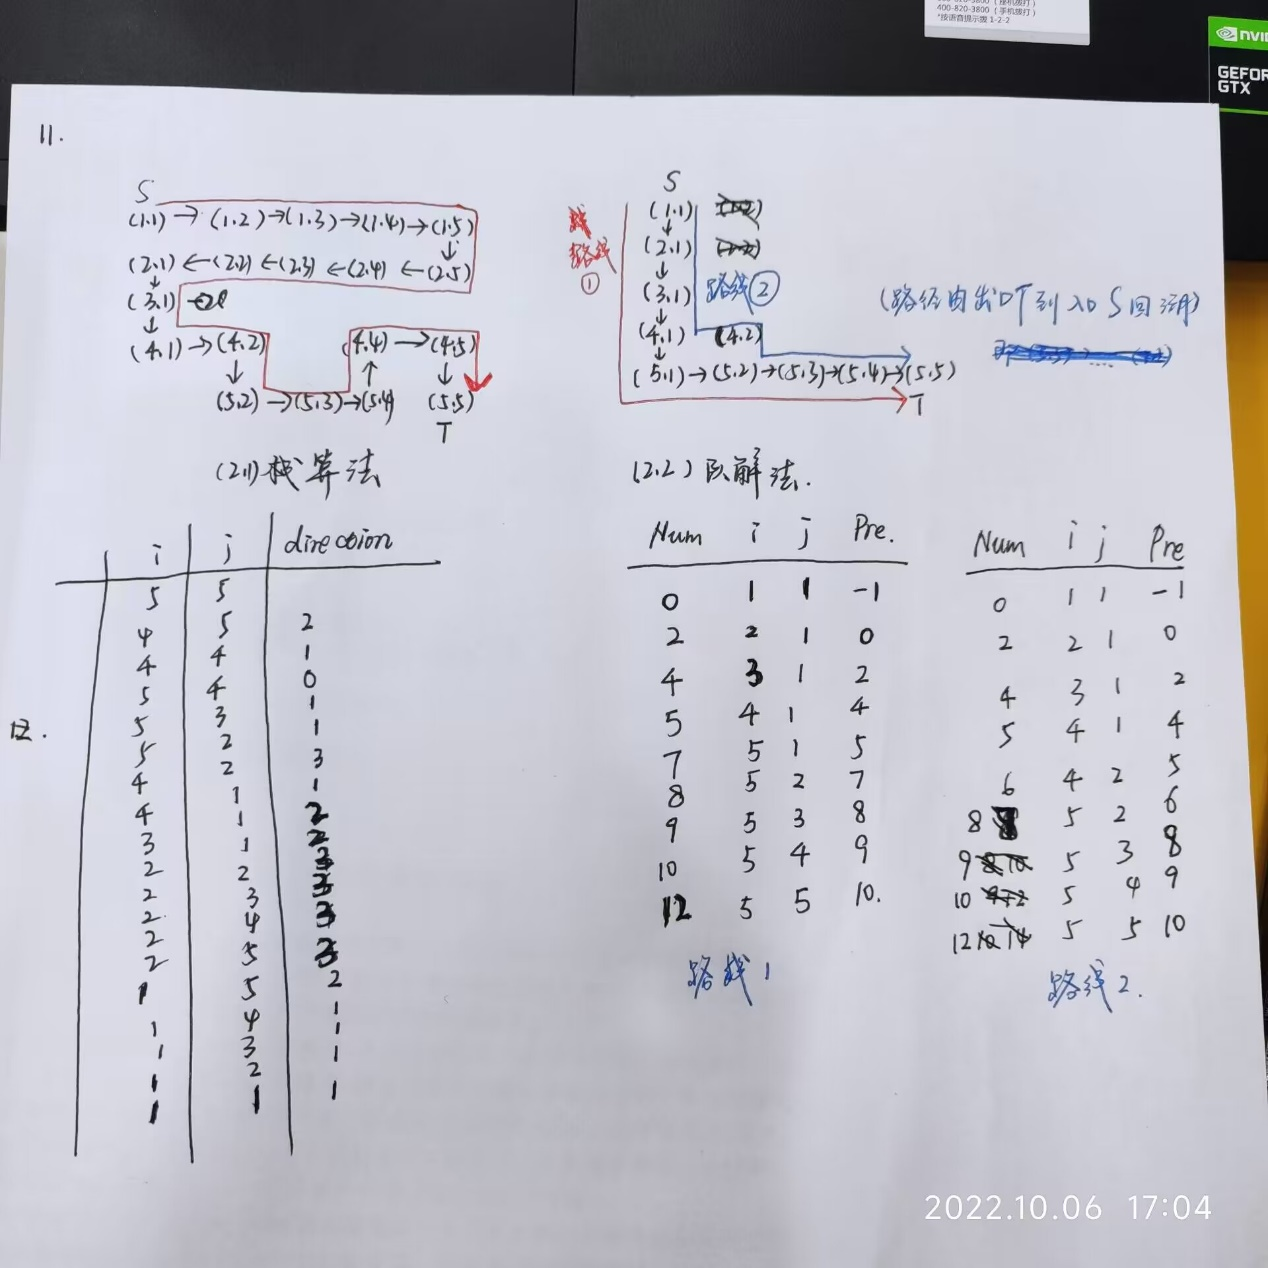 400-820-3800 (手机拨打)
*按语音提示拨 1-2-2
GEFOR
GTX
11.
S
(1.1) → (1.2) → (1.3) → (1.4) → (1.5)
↓
(2.1) ← (2.2) ← (2.3) ← (2.4) ← (2.5)
↓
(3.1)
↓
(4.1) → (4.2) (4.4) → (4.5)
↓ ↑ ↓
(5.2) → (5.3) → (5.4) (5.5)
T
(2.1) 栈算法
S
(1.1)
↓
(2.1)
↓
(3.1)
↓
(4.1) (4.2)
↓
(5.1) → (5.2) → (5.3) → (5.4) → (5.5)
T
路线
①
路线②
(路径由出口T到入口S回溯)
(2.2) 队解法.
i j direction
5 5
4 5 2
4 4 1
5 4 0
5 3 1
5 2 1
4 2 3
4 1 1
3 1 2
2 1 2
2 2 3
2 3 3
2 4 3
2 5 3
1 5 2
1 4 1
1 3 1
1 2 1
1 1 1
Num i j Pre.
0 1 1 -1
2 2 1 0
4 3 1 2
5 4 1 4
7 5 1 5
8 5 2 7
9 5 3 8
10 5 4 9
12 5 5 10.
路线1
Num i j Pre
0 1 1 -1
2 2 1 0
4 3 1 2
5 4 1 4
6 4 2 5
8 5 2 6
9 5 3 8
10 5 4 9
12 5 5 10
路线2.
2022.10.06 17:04